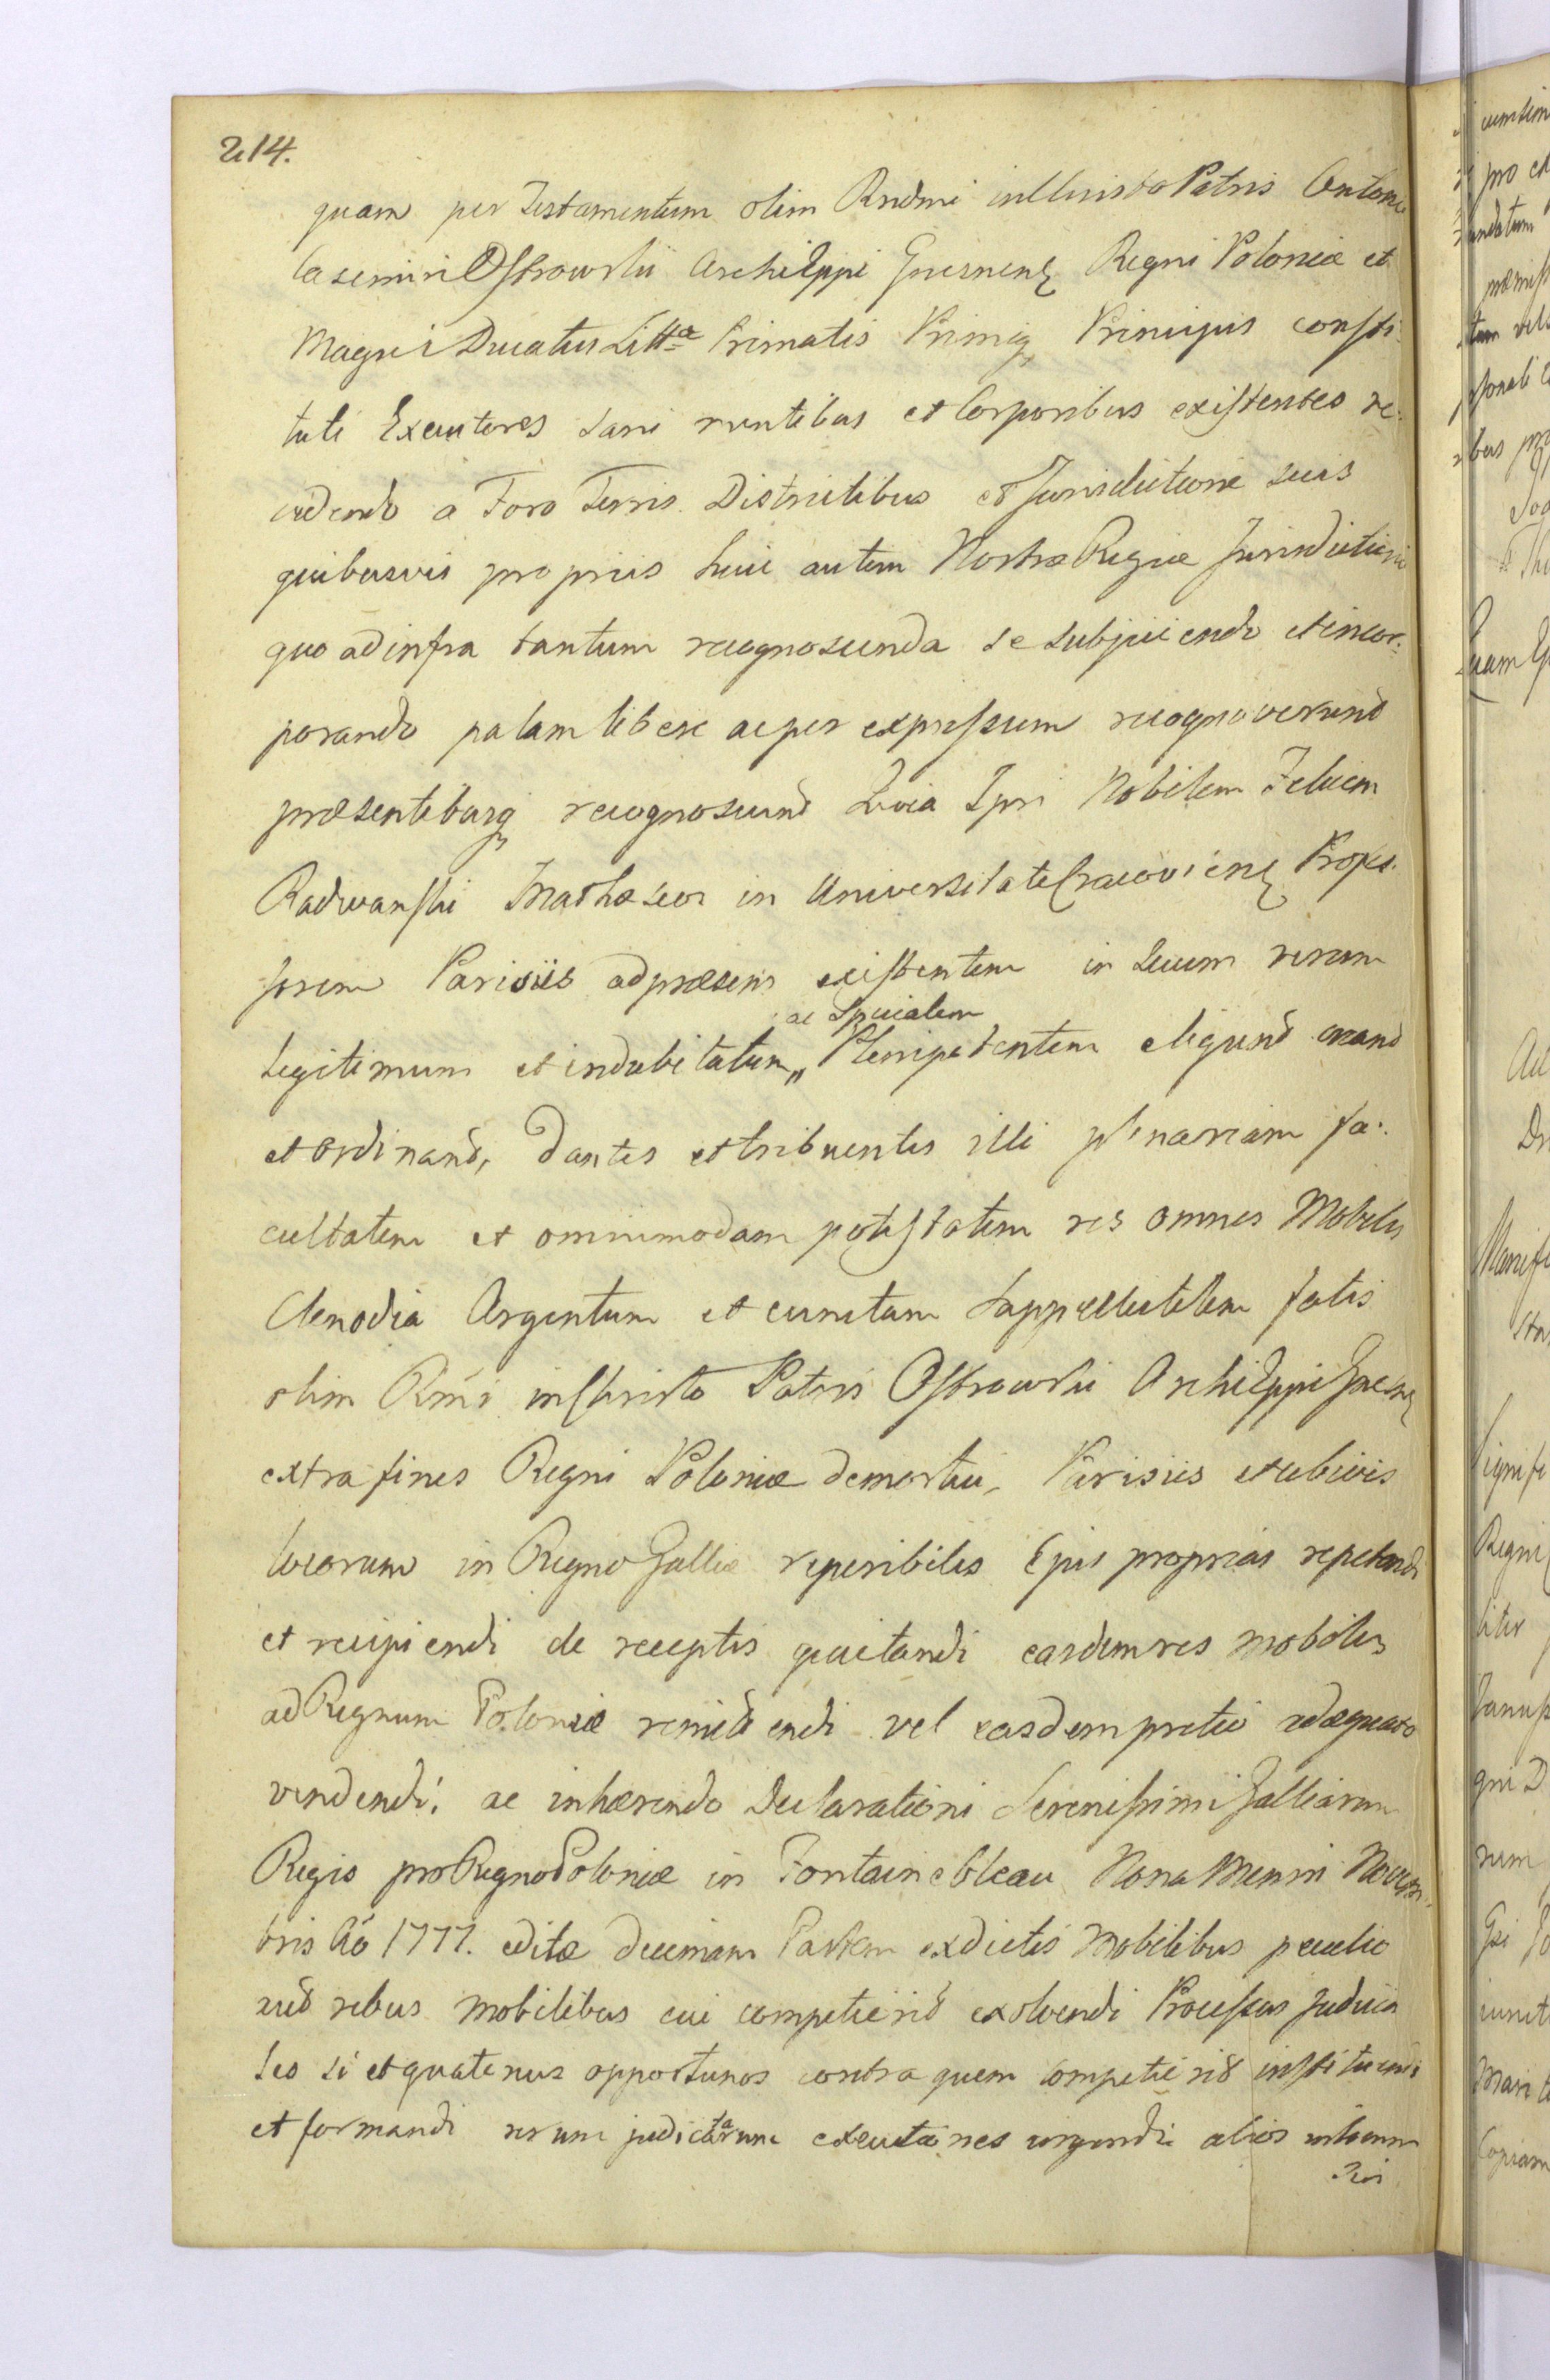 214.
quam per Testamentum olim Rndmi in Christo Patris Antoni
Casimiri Ostrowskii Archi Eppi Gnesnenq Regni Poloniæ et
Magni Ducatus Littæ Primatis Primiq Principis consti-
tuti Executores sani mentibus et Corporibus existentes re-
cedendo a Foro Terris Districtibus et Jurisdictione suis
quibusvis propriis huic autem Nostræ Regiæ Jurisdictioni
quo ad infra tantum recognoscenda se subjiciendo et incor-
porando palam libere ac per expressum recognoverund
præsentibusq recognoscund Quia Ipsi Nobilem Felicem
Radwanski Matheseos in Universitate Cracovienq Profes-
sorem Parisiis ad præsens existentem in suum verum
ac Specialem
Legitimum et indubitatum Plenipotentem eligund creand
et ordinand, Dantes et tribuentes illi plenariam fa-
cultatem et omnimodam potestatem res omnes Mobiles
Clenodia Argentum et cunctam Suppellectilem fatis
olim Rmi in Christo Patris Ostrowskii Archi Eppi Gnesnenq
extra fines Regni Poloniæ demortui, Parisiis et ubivis
locorum in Regno Galliæ reperibiles Ejus proprias repetendi
et recipiendi de receptis quietandi easdem res mobiles
ad Regnum Poloniæ remittendi vel easdem pretio adæquato
vendendi, ac inhærendo Declarationi Serenissimi Galliarum
Regis pro Regno Poloniæ in Fontainebleau Nona Mensis Novem-
bris Ao 1777. editæ decimam Partem ex dictis Mobilibus peculio
rebus mobilibus cui competierid exolvendi Processus Judicia
les si et quatenus opportunos contra quem competierid instituendi
et formandi rerum judicatarum executiones urgendi alios